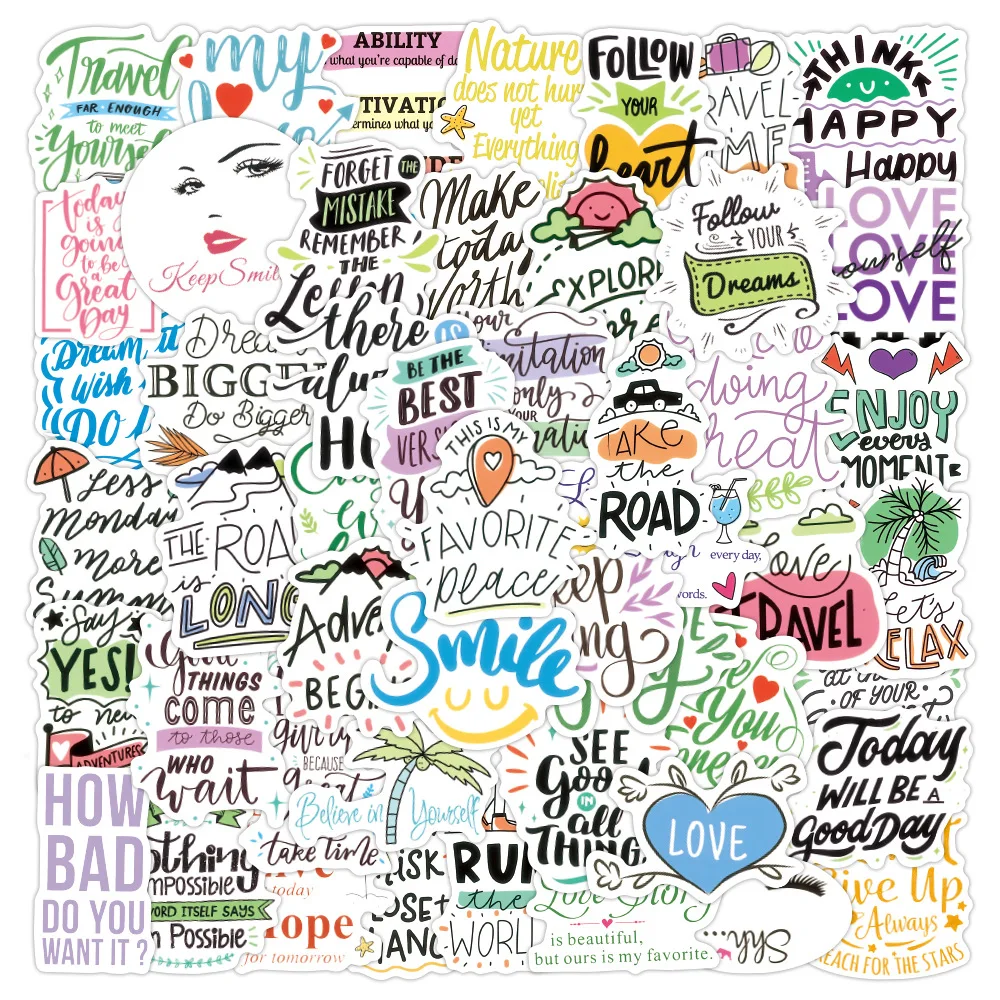 Travel
FAR ENOUGH
to meet
Yourself
my
ABILITY
what you're capable of do
TIVATIO
ermines what yo
Nature
does not hur
yet
Everything
FOLLOW
YOUR
heart
RAVEL
TIME
THINK
HAPPY
Happy
today
is
going
to be
a
Great
Day
Keep Smil
FORGET THE
MISTAKE
REMEMBER
THE
Lesson
Make
toda
Worth
EXPLORE
Follow
YOUR
Dreams
LOVE
LOVE
yourself
LOVE
Dream it
Wish it
DO I
Dream
BIGGE
Do Bigger
there
BE THE
BEST
VERS
Your
imitation
only
YOUR
TAKE
the
ROAD
doing
reat
ENJOY
every
MOMENT
Less
Monday
More
Summ
THE ROA
is
LONG
THIS IS MY
FAVORITE
place
every day,
words.
Love
TRAVEL
Let's
RELAX
Say
YES!
to new
ADVENTURES
Good
THINGS
come
to those
WHO
wait
Adve
BEG
Smile
eep
ng
You
at th
OF YOUR
Today
WILL BE A
Good Day
HOW
BAD
DO YOU
WANT IT ?
BECAUSE
Great
Believe in Yourself
SEE
Good
IN
all
THING
LOVE
othing
IMPOSSIBLE
WORD ITSELF SAYS
Possible
take time
today
Hope
for tomorrow
RISK
LOSE
RUN
the
WORL
Love Story
is beautiful,
but ours is my favorite.
Shh...
Give Up
Always
REACH FOR THE STARS